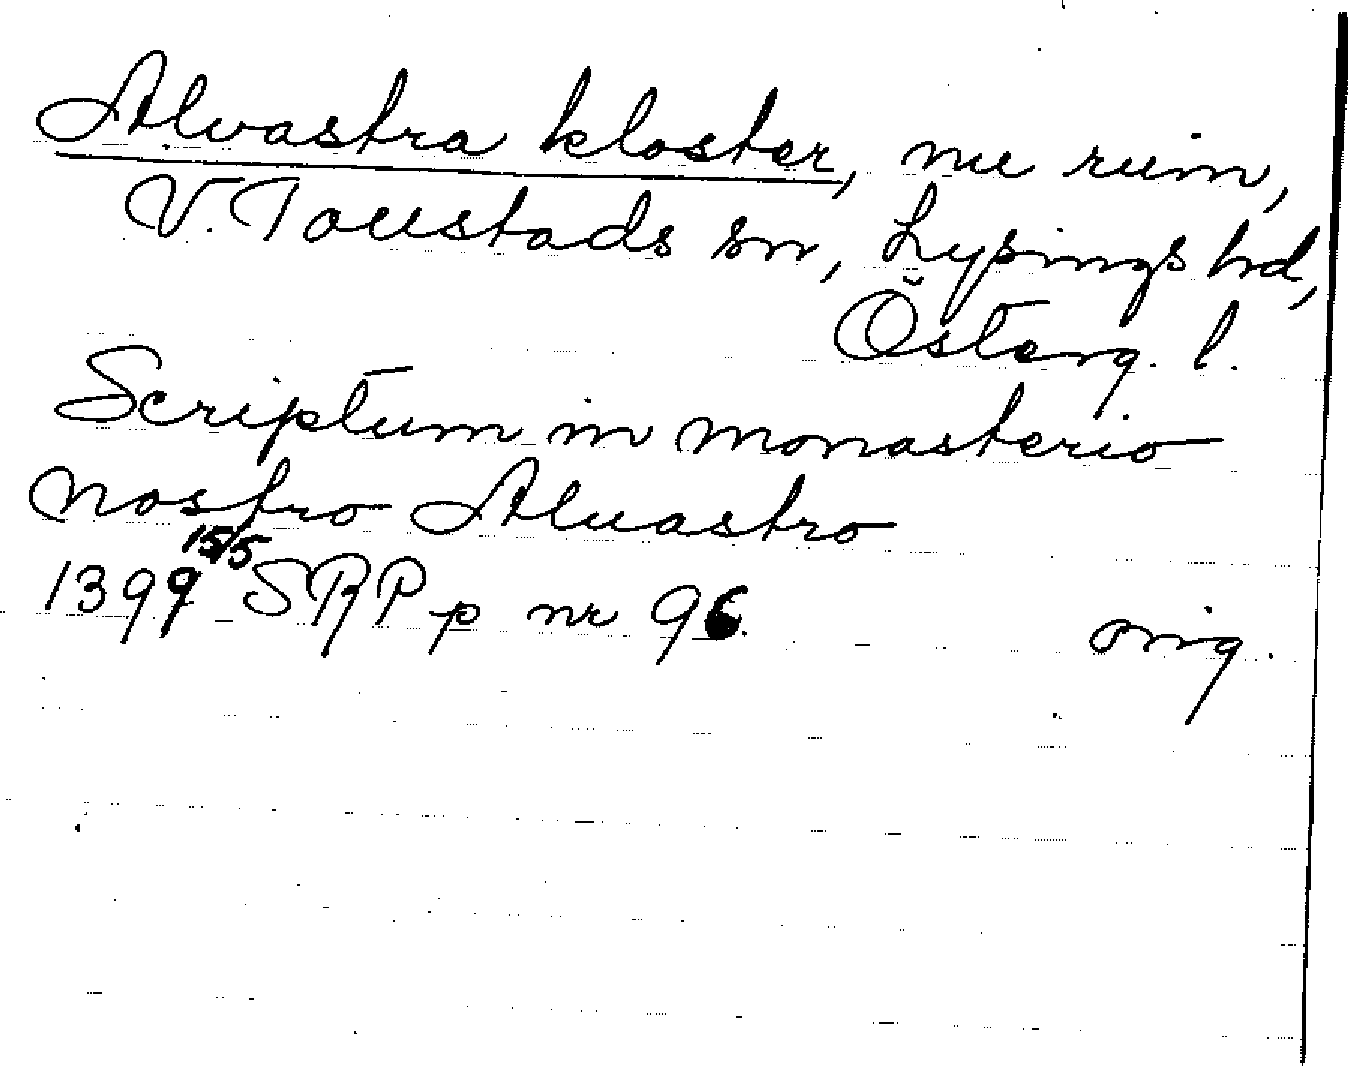 Alvastra kloster, nu ruin,
V. Toustads sn, Lysings hd,
Österg. l.
Scriptum in monasterio
nostro Aluastro
1399 15/5 SRP p nr 96 orig.